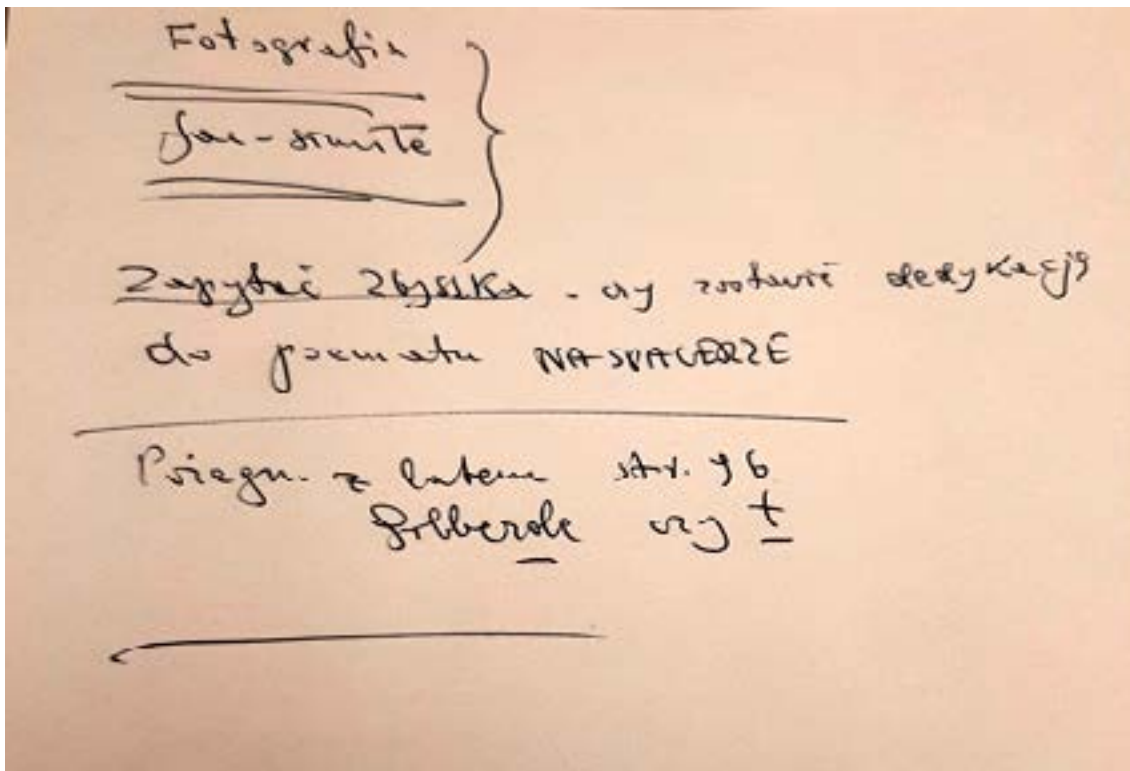 Fotografia
fac-simile
Zapytać Zbyszka - czy zostawić dedykację
do poematu NA SPACERZE
Pożegn. z latem str. 96
czy t